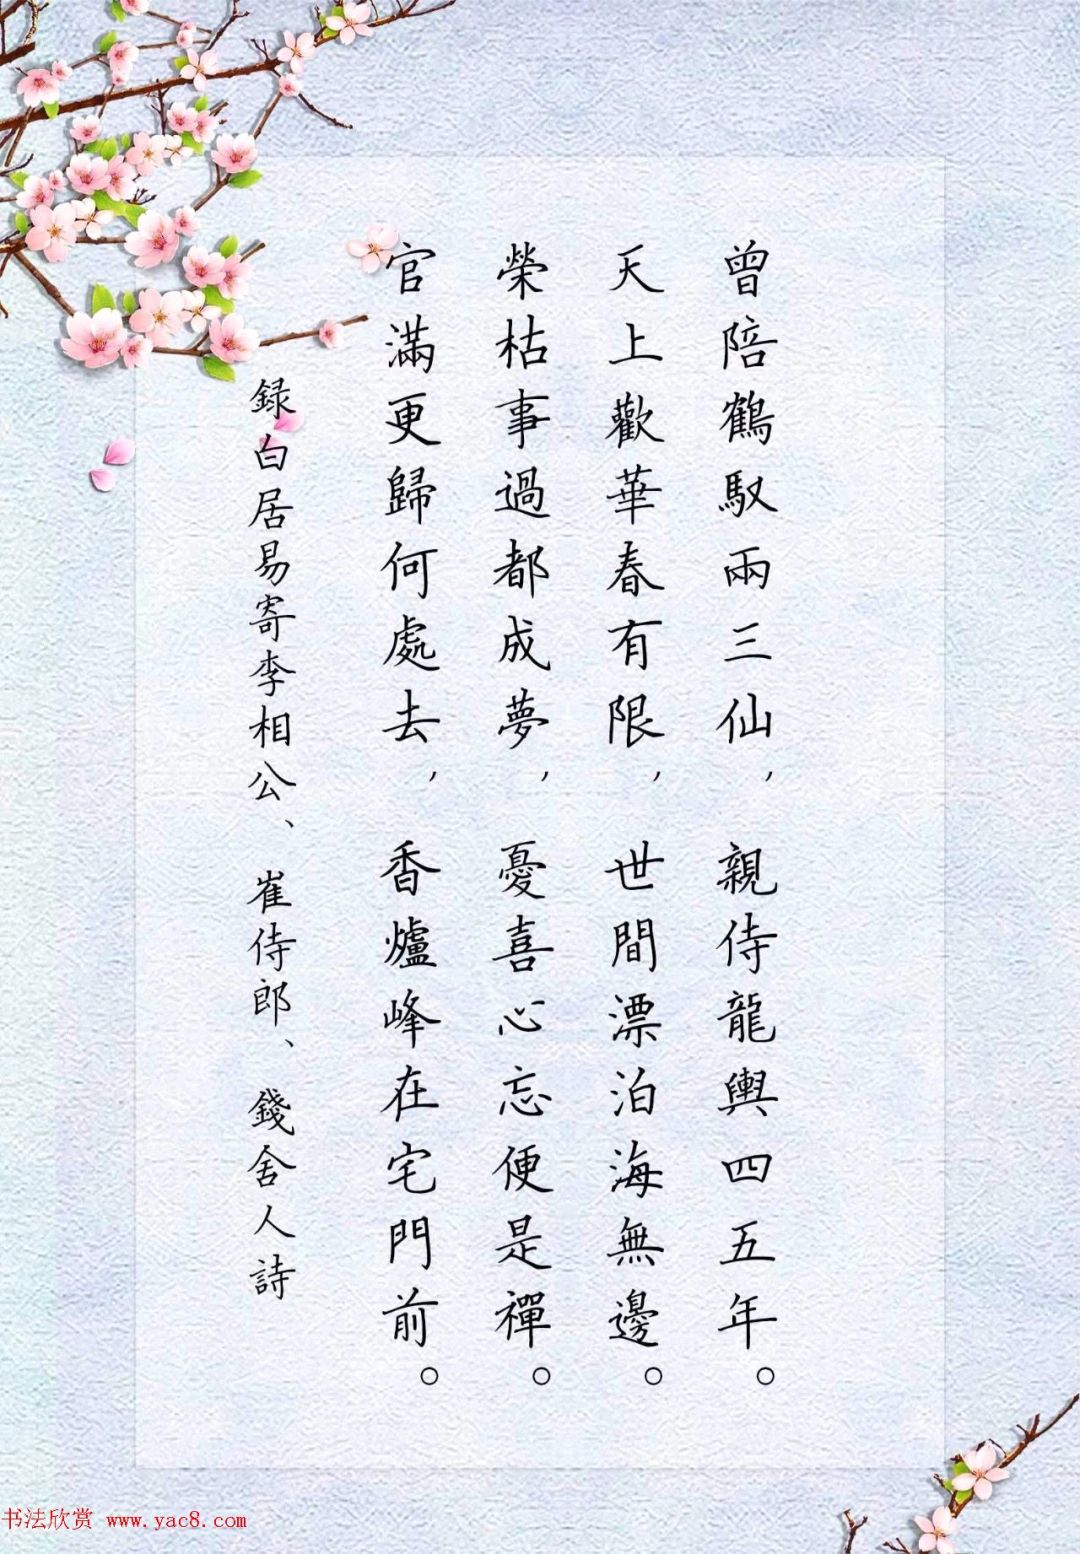 曾陪鶴馭兩三仙，親侍龍輿四五年。
天上歡華春有限，世間漂泊海無邊。
榮枯事過都成夢，憂喜心忘便是禪。
官滿更歸何處去，香爐峰在宅門前。
録白居易寄李相公、崔侍郎、錢舍人詩
书法欣赏 www.yac8.com